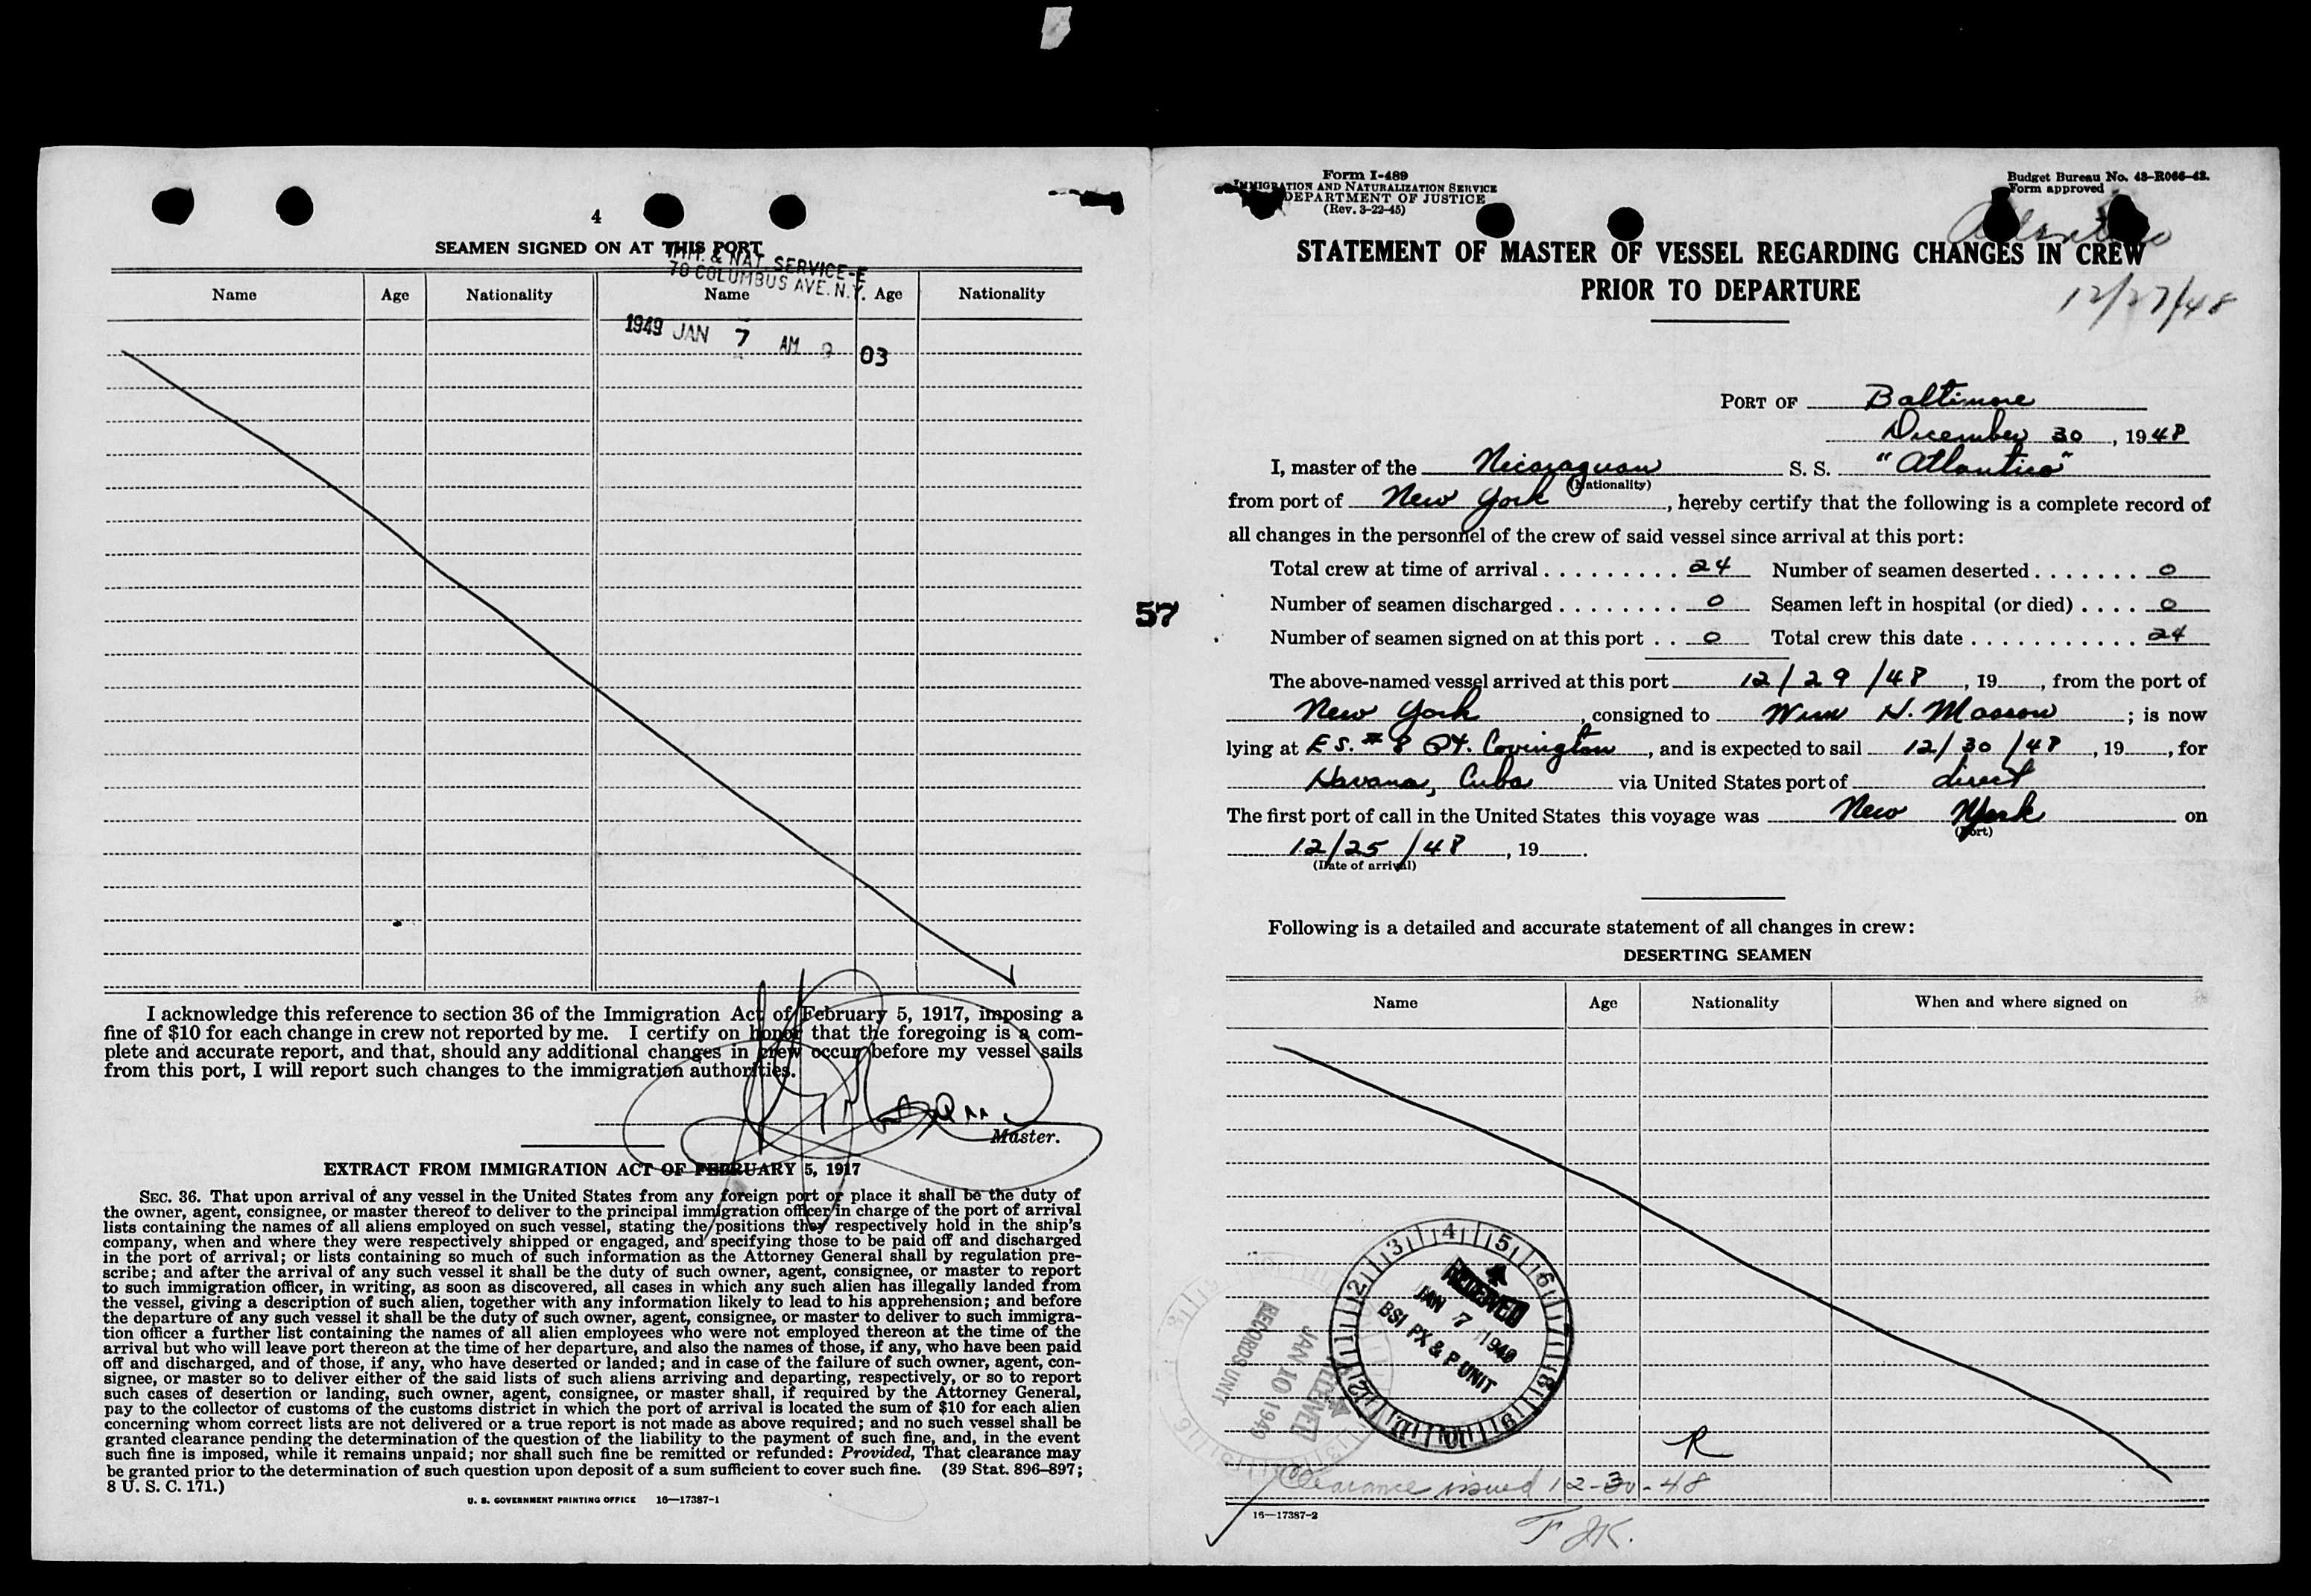 4
SEAMEN SIGNED ON AT THIS PORT
IMM. & NAT. SERVICE-E
70 COLUMBUS AVE. N.Y.
Name Age Nationality Name Age Nationality
1949 JAN 7 AM 9 03
I acknowledge this reference to section 36 of the Immigration Act of February 5, 1917, imposing a
fine of $10 for each change in crew not reported by me. I certify on honor that the foregoing is a com-
plete and accurate report, and that, should any additional changes in crew occur before my vessel sails
from this port, I will report such changes to the immigration authorities.
Master.
EXTRACT FROM IMMIGRATION ACT OF FEBRUARY 5, 1917
SEC. 36. That upon arrival of any vessel in the United States from any foreign port or place it shall be the duty of
the owner, agent, consignee, or master thereof to deliver to the principal immigration officer in charge of the port of arrival
lists containing the names of all aliens employed on such vessel, stating the positions they respectively hold in the ship's
company, when and where they were respectively shipped or engaged, and specifying those to be paid off and discharged
in the port of arrival; or lists containing so much of such information as the Attorney General shall by regulation pre-
scribe; and after the arrival of any such vessel it shall be the duty of such owner, agent, consignee, or master to report
to such immigration officer, in writing, as soon as discovered, all cases in which any such alien has illegally landed from
the vessel, giving a description of such alien, together with any information likely to lead to his apprehension; and before
the departure of any such vessel it shall be the duty of such owner, agent, consignee, or master to deliver to such immigra-
tion officer a further list containing the names of all alien employees who were not employed thereon at the time of the
arrival but who will leave port thereon at the time of her departure, and also the names of those, if any, who have been paid
off and discharged, and of those, if any, who have deserted or landed; and in case of the failure of such owner, agent, con-
signee, or master so to deliver either of the said lists of such aliens arriving and departing, respectively, or so to report
such cases of desertion or landing, such owner, agent, consignee, or master shall, if required by the Attorney General,
pay to the collector of customs of the customs district in which the port of arrival is located the sum of $10 for each alien
concerning whom correct lists are not delivered or a true report is not made as above required; and no such vessel shall be
granted clearance pending the determination of the question of the liability to the payment of such fine, and, in the event
such fine is imposed, while it remains unpaid; nor shall such fine be remitted or refunded: Provided, That clearance may
be granted prior to the determination of such question upon deposit of a sum sufficient to cover such fine. (39 Stat. 896–897;
8 U. S. C. 171.)
U. S. GOVERNMENT PRINTING OFFICE 16—17387-1
57
Form I-489
IMMIGRATION AND NATURALIZATION SERVICE
DEPARTMENT OF JUSTICE
(Rev. 3-22-45)
Budget Bureau No. 43-R066-42.
Form approved
Atlantico
STATEMENT OF MASTER OF VESSEL REGARDING CHANGES IN CREW
PRIOR TO DEPARTURE
12/27/48
PORT OF Baltimore
December 30, 1948
I, master of the Nicaraguan S. S. "Atlantico"
(Nationality)
from port of New York, hereby certify that the following is a complete record of
all changes in the personnel of the crew of said vessel since arrival at this port:
Total crew at time of arrival . . . . . . . . . 24 Number of seamen deserted . . . . . . . 0
Number of seamen discharged . . . . . . . . 0 Seamen left in hospital (or died) . . . . 0
Number of seamen signed on at this port . . 0 Total crew this date . . . . . . . . . . . 24
The above-named vessel arrived at this port 12/29/48, 19____, from the port of
New York, consigned to Wm H. Masson; is now
lying at E S. # 8 Pt. Covington, and is expected to sail 12/30/48, 19____, for
Havana, Cuba via United States port of direct
The first port of call in the United States this voyage was New York on
(Port)
12/25/48, 19____.
(Date of arrival)
Following is a detailed and accurate statement of all changes in crew:
DESERTING SEAMEN
Name Age Nationality When and where signed on
RECEIVED
JAN 7 1949
BSI PX & P UNIT
RECEIVED
JAN 10 1949
RECORDS UNIT
R
Clearance issued 12-30-48
16—17387-2
F JK.